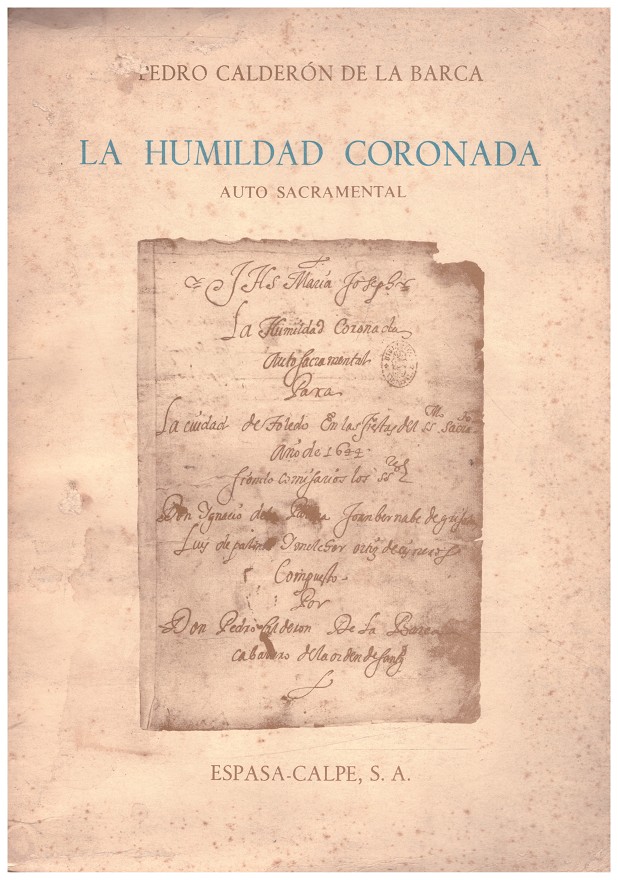 PEDRO CALDERÓN DE LA BARCA
LA HUMILDAD CORONADA
AUTO SACRAMENTAL
JHS Maria Joseph
La Humildad Coronada
Auto Sacramental
Para
La ciudad de Toledo En las fiestas del SS.
Año de 1644
siendo comisarios los SS
Don Ygnacio de la Juan bernabe de
Luis de Y melchor ortiz de cisneros
Compuesto
Por
Don Pedro Calderon De La Barca
caballero de la orden de
ESPASA-CALPE, S. A.